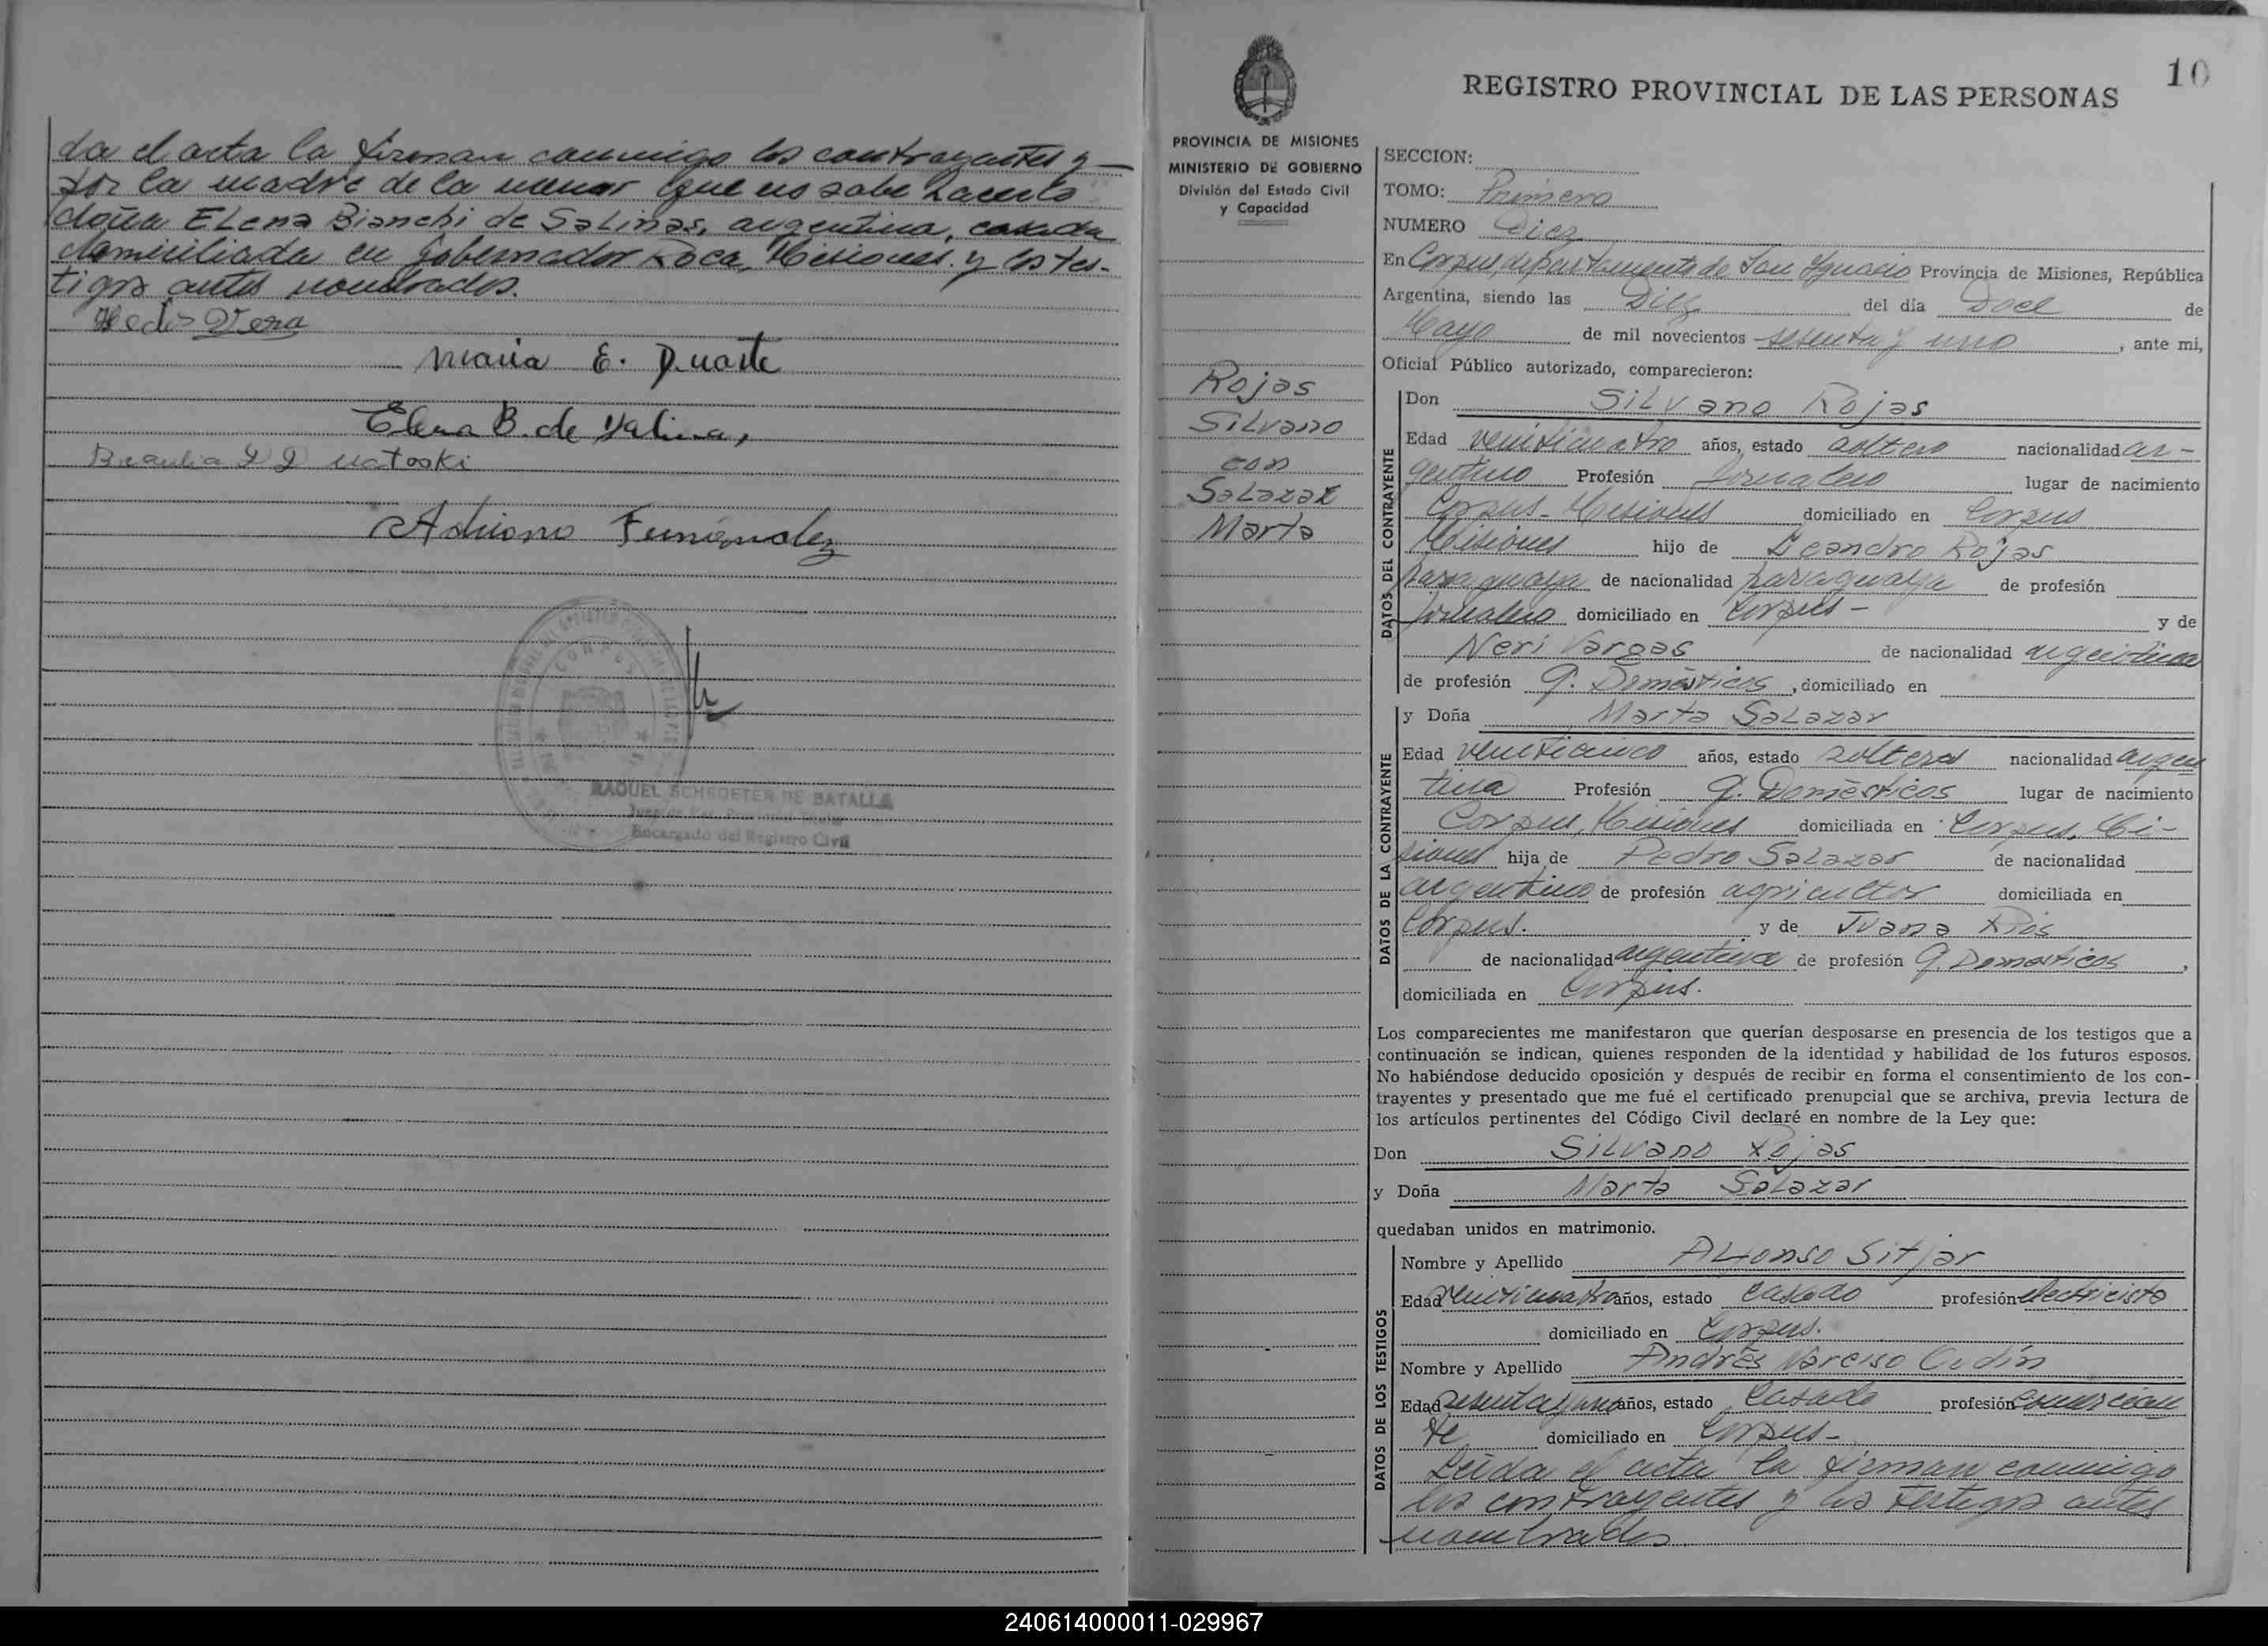 da el acta la firman conmigo los contrayentes y
por la madre de la menor que no sabe hacerlo
doña Elena Bianchi de Salinas, argentina, casada
domiciliada en Gobernador Roca, Misiones y los tes-
tigos antes nombrados.
Vera
Maria E. Duarte
Elena B. de Salinas
Adriano
CORPUS
RAQUEL SCHROETER DE BATALLA
Encargado del Registro Civil
10
REGISTRO PROVINCIAL DE LAS PERSONAS
PROVINCIA DE MISIONES
MINISTERIO DE GOBIERNO
División del Estado Civil
y Capacidad
Rojas
Silvano
con
Salazar
Marta
SECCION:
TOMO: Primero
NUMERO Diez
En Corpus, departamento de San Ignacio Provincia de Misiones, República
Argentina, siendo las Diez del día Doce de
Mayo de mil novecientos sesenta y uno, ante mi,
Oficial Público autorizado, comparecieron:
DATOS DEL CONTRAYENTE
Don Silvano Rojas
Edad venticuatro años, estado soltero nacionalidad ar-
gentino Profesión Jornalero lugar de nacimiento
Corpus - Misiones domiciliado en Corpus
Misiones hijo de Leandro Rojas
paraguaya de nacionalidad paraguaya de profesión
jornalero domiciliado en Corpus - y de
Neri Vargas de nacionalidad argentina
de profesión q. Domésticos, domiciliado en
DATOS DE LA CONTRAYENTE
y Doña Marta Salazar
Edad venticinco años, estado soltera nacionalidad argen
tina Profesión q. Domésticos lugar de nacimiento
Corpus, Misiones domiciliada en Corpus, Mi-
siones hija de Pedro Salazar de nacionalidad
argentino de profesión agricultor domiciliada en
Corpus. y de Juana Rios
de nacionalidad argentina de profesión q. Domésticos,
domiciliada en Corpus.
Los comparecientes me manifestaron que querían desposarse en presencia de los testigos que a
continuación se indican, quienes responden de la identidad y habilidad de los futuros esposos.
No habiéndose deducido oposición y después de recibir en forma el consentimiento de los con-
trayentes y presentado que me fué el certificado prenupcial que se archiva, previa lectura de
los artículos pertinentes del Código Civil declaré en nombre de la Ley que:
Don Silvano Rojas
y Doña Marta Salazar
quedaban unidos en matrimonio.
DATOS DE LOS TESTIGOS
Nombre y Apellido Alfonso Sitjar
Edad venticuatro años, estado casado profesión electricista
domiciliado en Corpus.
Nombre y Apellido Andrés Narciso
Edad sesenta y uno años, estado casado profesión comercian
te domiciliado en Corpus -
Leida el acta la firman conmigo
los contrayentes y los testigos antes
nombrados.
240614000011-029967